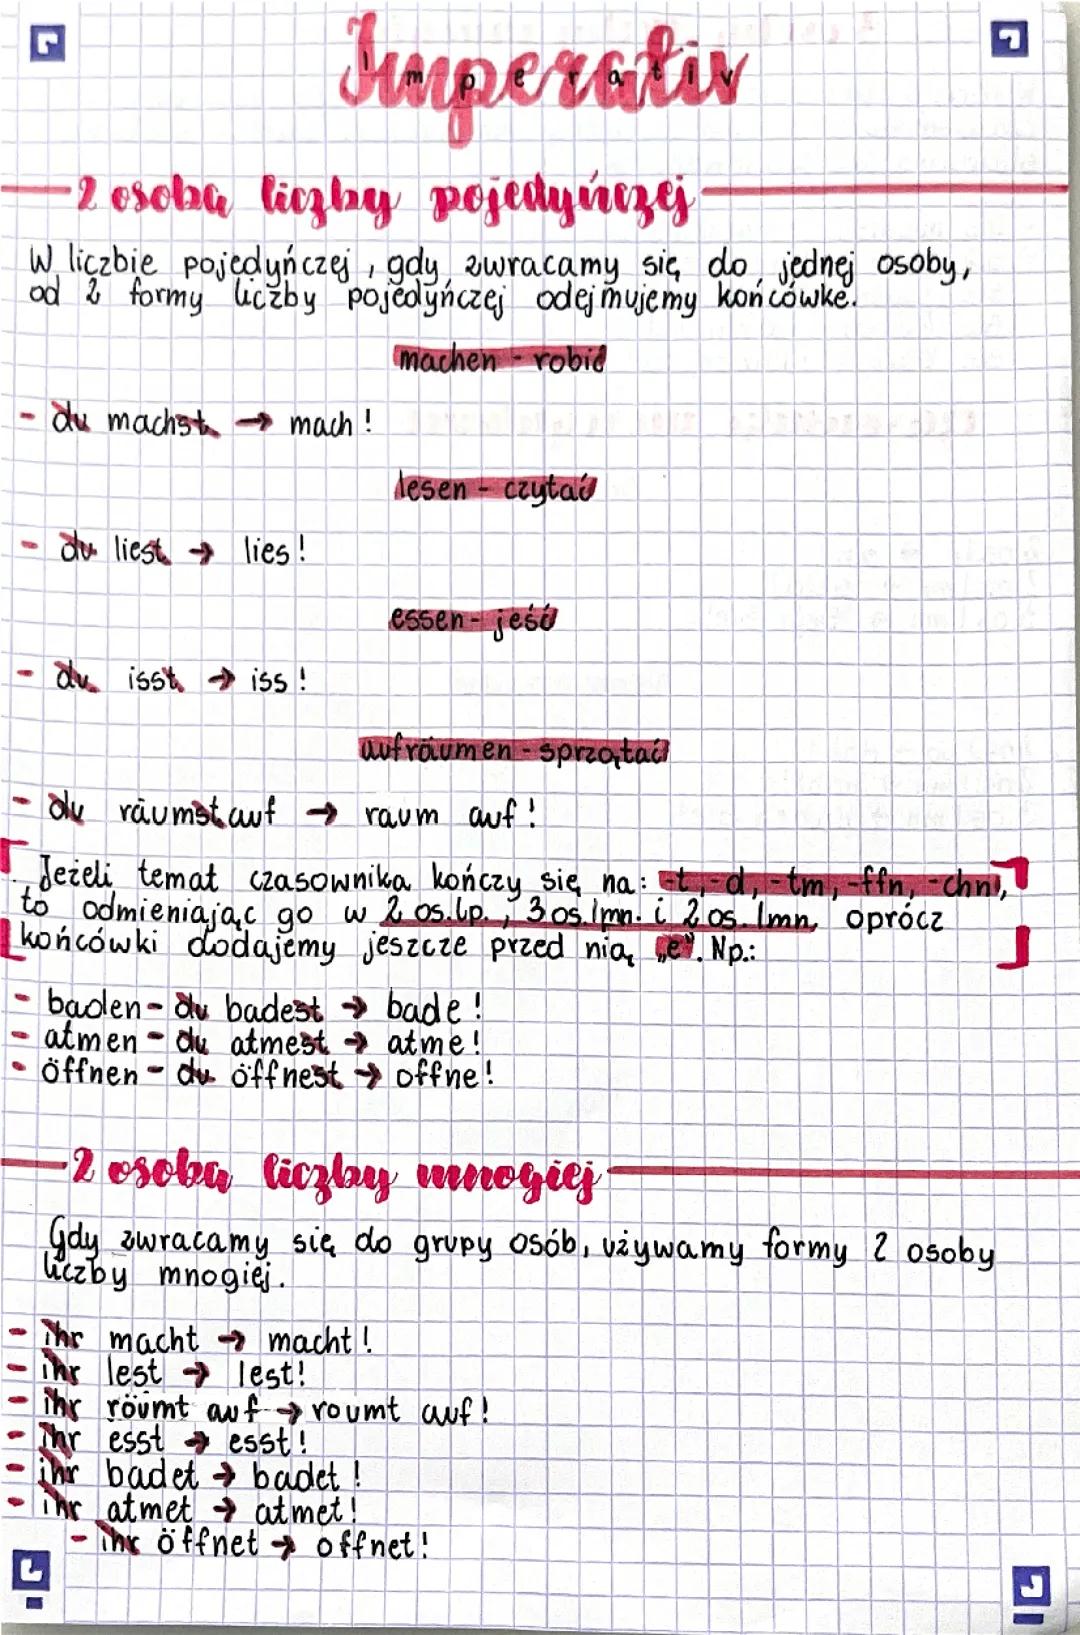 Imperativ
2 osoba liczby pojedyńczej
W liczbie pojedyńczej, gdy zwracamy się do jednej osoby,
od 2 formy liczby pojedyńczej odejmujemy końcówke.
machen - robić
- du machst → mach!
lesen - czytać
- du liest → lies!
essen - jeść
- du isst → iss!
aufräumen - sprzątać
- du räumst auf → raum auf!
Jeżeli temat czasownika kończy się na: -t, -d, -tm, -ffn, -chn,
to odmieniając go w 2 os.lp., 3 os.lmn. i 2 os. lmn. oprócz
końcówki dodajemy jeszcze przed nią „e”. Np.:
- baden - du badest → bade!
- atmen - du atmest → atme!
- öffnen - du öffnest → offne!
2 osoba liczby mnogiej
Gdy zwracamy się do grupy osób, używamy formy 2 osoby
liczby mnogiej.
- ihr macht → macht!
- ihr lest → lest!
- ihr röumt auf → roumt auf!
- ihr esst → esst!
- ihr badet → badet!
- ihr atmet → atmet!
- ihr öffnet → offnet!